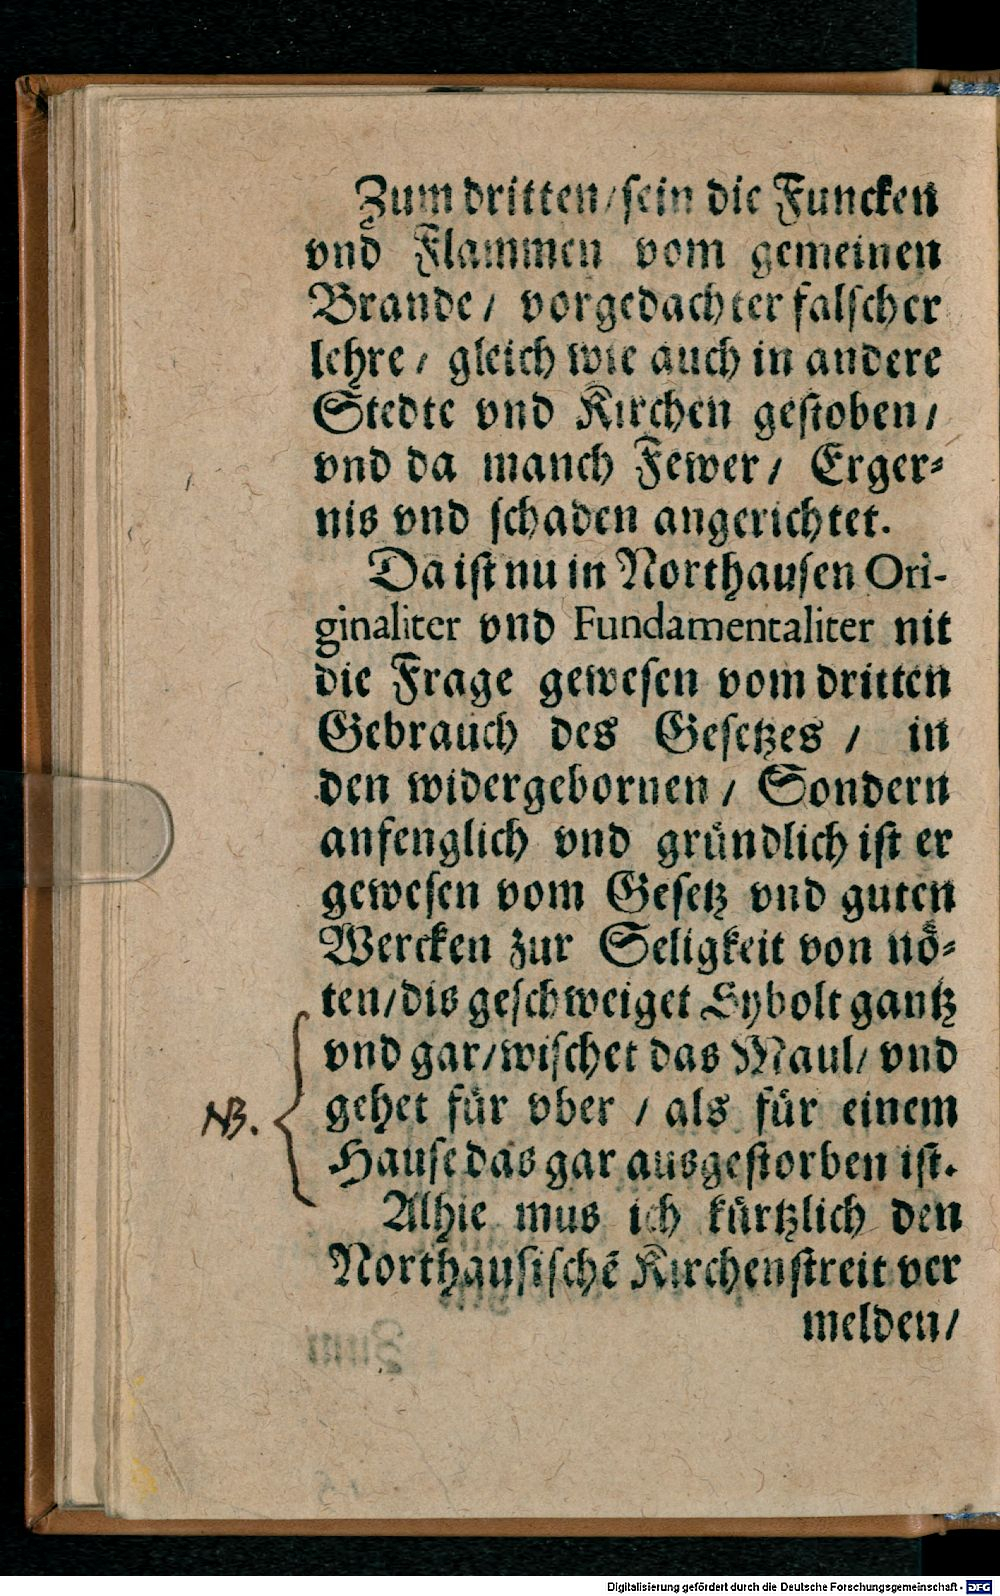 Zum dritten/sein die Funcken
vnd Flammen vom gemeinen
Brande/ vorgedachter falscher
lehre/ gleich wie auch in andere
Stedte vnd Kirchen gestoben/
vnd da manch Fewer/ Erger⸗
nis vnd schaden angerichtet.
Da ist nu in Northausen Ori-
ginaliter vnd Fundamentaliter nit
die Frage gewesen vom dritten
Gebrauch des Gesetzes / in
den widergebornen/ Sondern
anfenglich vnd gründlich ist er
gewesen vom Gesetz vnd guten
Wercken zur Seligkeit von nö⸗
ten/dis geschweiget Sybolt gantz
vnd gar/wischet das Maul/ vnd
gehet für vber / als für einem
NB.
Hause das gar ausgestorben ist.
Alhie mus ich kürtzlich den
Northausischē Kirchenstreit ver
melden/
Digitalisierung gefördert durch die Deutsche Forschungsgemeinschaft - DFG